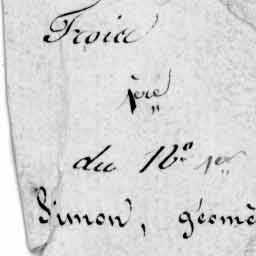 Froid
1ère "
du N° 1er "
Simon, géomè